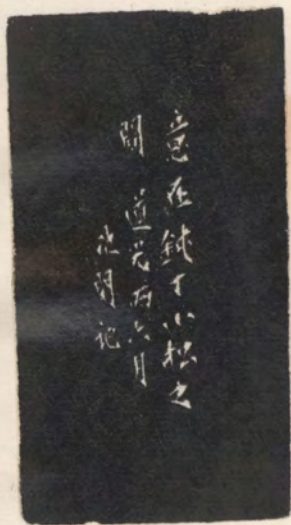 意在鈍丁小松之
間 道光丙六月
次閑記